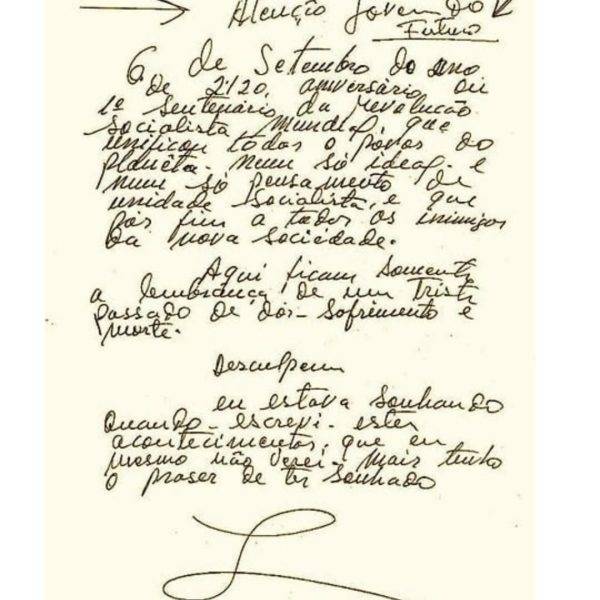 Atenção Jovem Do
Futuro
6 de Setembro do ano
de 2120, aniversário ou
1º sentenário da revolução
socialista mundial, que
unificou todos o povos do
planêta. num só ideal. e
num só pensamento de
unidade socialista, e que
pôs fim a todos os inimigos
da nova sociedade.
Aqui ficam somente
a lembrança de um triste
passado de dôr - sofrimento e
morte.
Desculpem
eu estava sonhando
quando - escrevi - estes
acontecimentos, que eu
mesmo não verei - mais tenho
o praser de ter sonhado